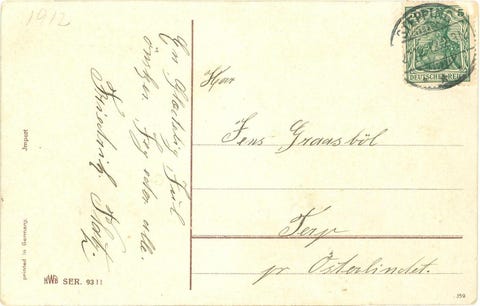 1912
En Glædelig Jul
önsker Jeg eder alle.
Friedrich
Herr
Jens Graasböl
Terp
pr Österlindet.
DEUTSCHES REICH
Import
printed in Germany.
HWB SER. 9311
359